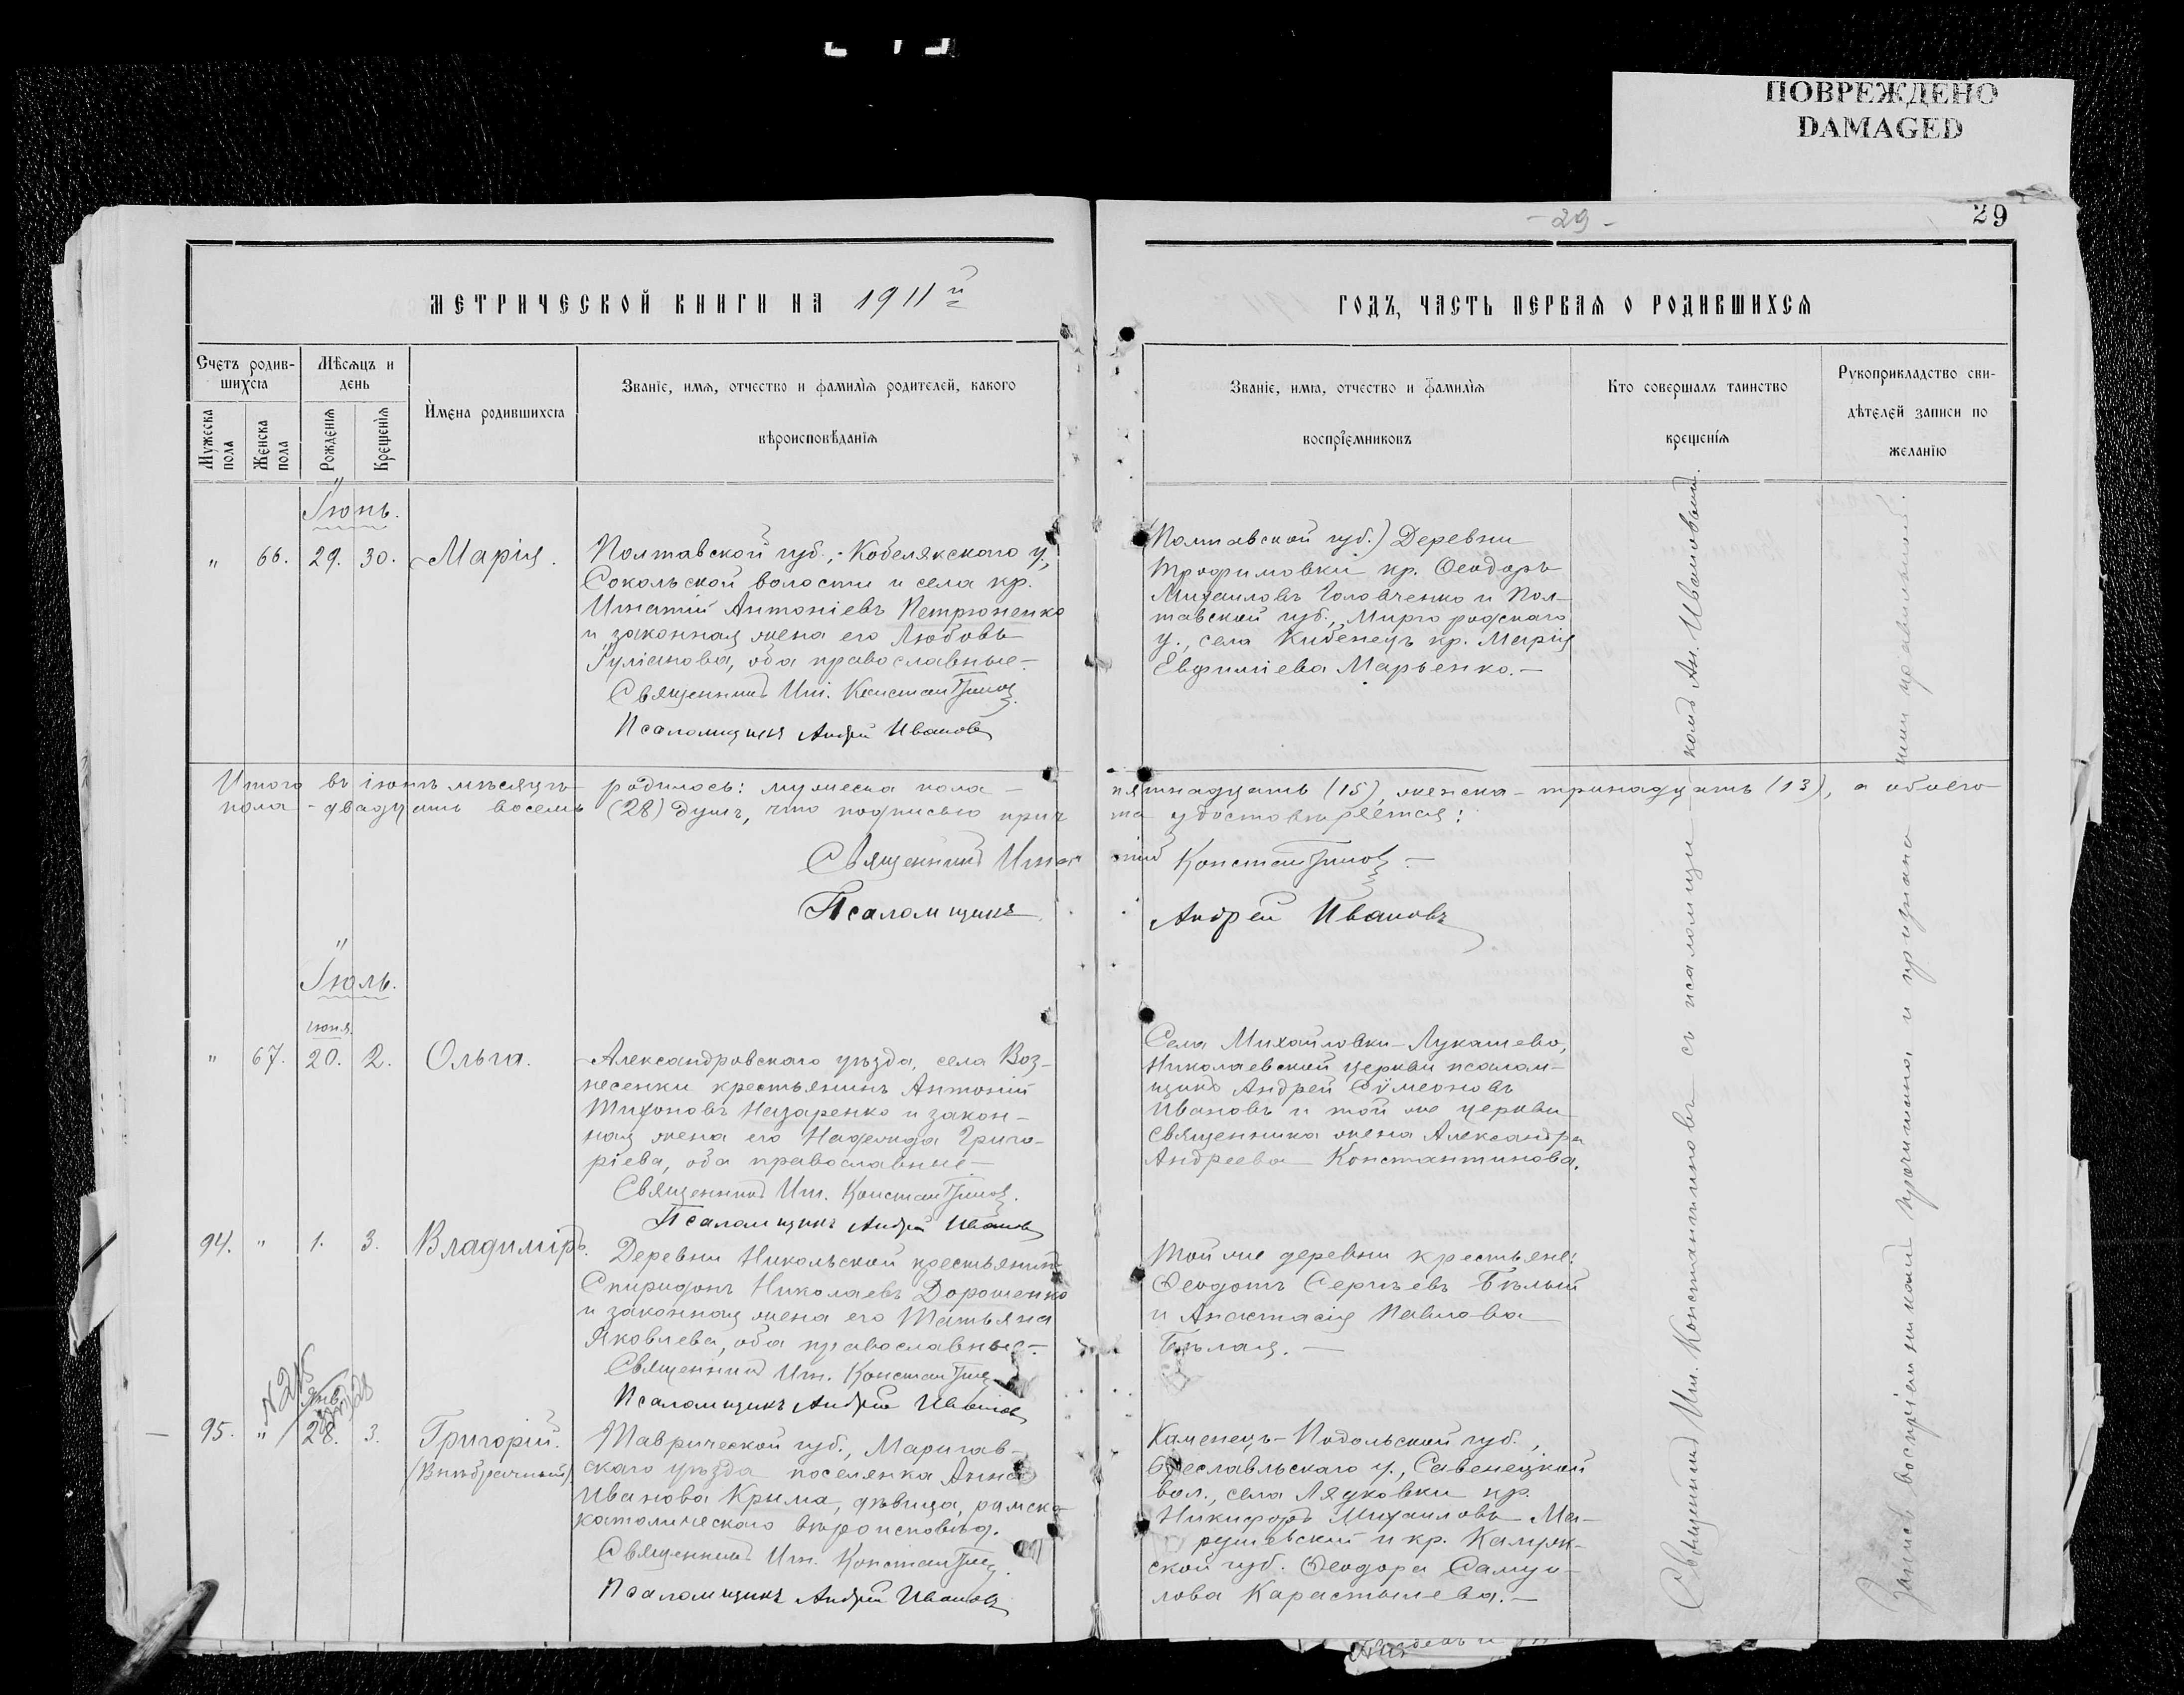 ПОВРЕЖДЕНО
DAMAGED
- 29 -
29
МЕТРИЧЕСКОЙ КНИГИ НА 1911й
Счетъ родив-
шихся
Мѣсяцъ и
день
Мужеска
пола
Женска
пола
Рожденія
Крещенія
Имена родившихся
Званіе, имя, отчество и фамилія родителей, какого
вѣроисповѣданія
Іюнь.
" 66. 29. 30. Марія.
Полтавской губ., Кобелякскаго у.,
Сокольской волости и села кр.
Игнатій Антоніевъ Петрюненко
и законная жена его Любовь
Іуліанова, оба православные.-
Священникъ Игн. Константиновъ.
Псаломщикъ Андрей Ивановъ
Итого въ іюнѣ мѣсяцѣ родилось: мужеска пола -
пола - двадцать восемь (28) душъ, что подписью прич
Священникъ Игна
Псаломщикъ
Іюль.
іюня.
" 67. 20. 2. Ольга.
Александровскаго уѣзда, села Воз-
несенки крестьянинъ Антоній
Тихоновъ Назаренко и закон-
ная жена его Надежда Григо-
ріева, оба православные.-
Священникъ Игн. Константиновъ.
Псаломщикъ Андрей Ивановъ
94. " 1. 3. Владиміръ.
Деревни Никольской крестьянинъ
Спиридонъ Николаевъ Дорошенко
и законная жена его Татьяна
Яковлева, оба православные.-
Священникъ Игн. Константиновъ
Псаломщикъ Андрей Ивановъ
95. " 28. 3. Григорій.
(Внѣбрачный)
Таврической губ.,
скаго уѣзда поселянка Анна
Иванова Крыма, дѣвица, римско-
католическаго вѣроисповѣд.
Священникъ Игн. Константиновъ.
Псаломщикъ Андрей Ивановъ
ГОДЪ, ЧАСТЬ ПЕРВАЯ О РОДИВШИХСЯ
Званіе, имя, отчество и фамилія
воспріемниковъ
Кто совершалъ таинство
крещенія
Рукоприкладство сви-
дѣтелей записи по
желанію
(Полтавской губ.) Деревни
Трофимовки кр. Ѳеодоръ
Михаиловъ Головченко и Пол-
тавской губ., Миргородскаго
у., села Кибенецъ кр. Марія
Евфиміева Марьенко.-
пятнадцать (15), женска - тринадцать (13), а обоего
та удостовѣряется:
тій Константиновъ.-
Андрей Ивановъ
Села Михайловки-Лукашево,
Николаевской церкви псалом-
щикъ Андрей Сѵмеоновъ
Ивановъ и той же церкви
священника жена Александра
Андреева Константинова.
Той же деревни крестьяне:
Ѳеодотъ Сергѣевъ Бѣлый
и Анастасія Павлова
Бѣлая.-
Каменецъ-Подольской губ.,
Брѣславльскаго у., Савенецкой
вол., села Лядковки кр.
Никифоръ Михаиловъ Ма-
рушевскій и кр.
ской губ. Ѳеодора Самуи-
лова Карастылева.-
Священникъ Игн. Константиновъ съ псаломщи-комъ Ан. Ивановымъ.
Запись воспріемниками прочитана и признана ими правильной.